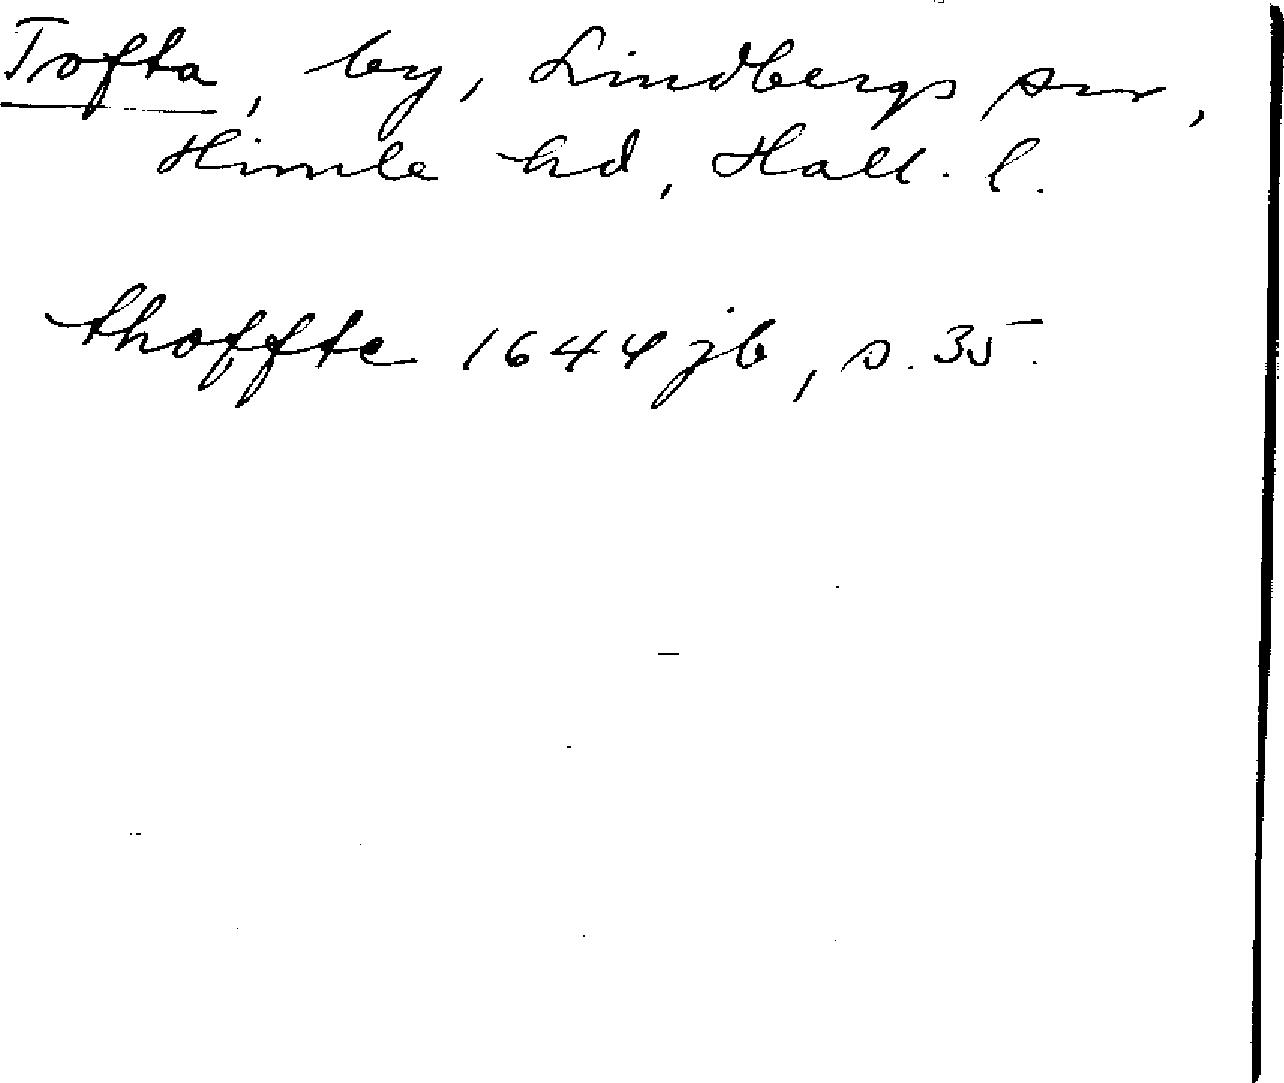 Tofta, by, Lindbergs sn,
Himle hd, Hall. l.
thoffte 1644 jb, s. 35.